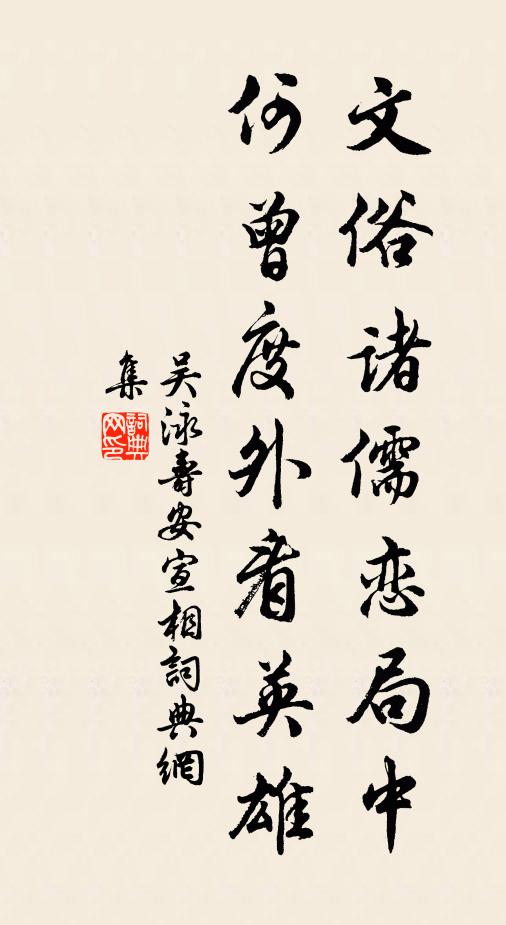 文俗诸儒恋局中
何曾度外看英雄
吴泳寿安宣相詞典網
集
詞典网印